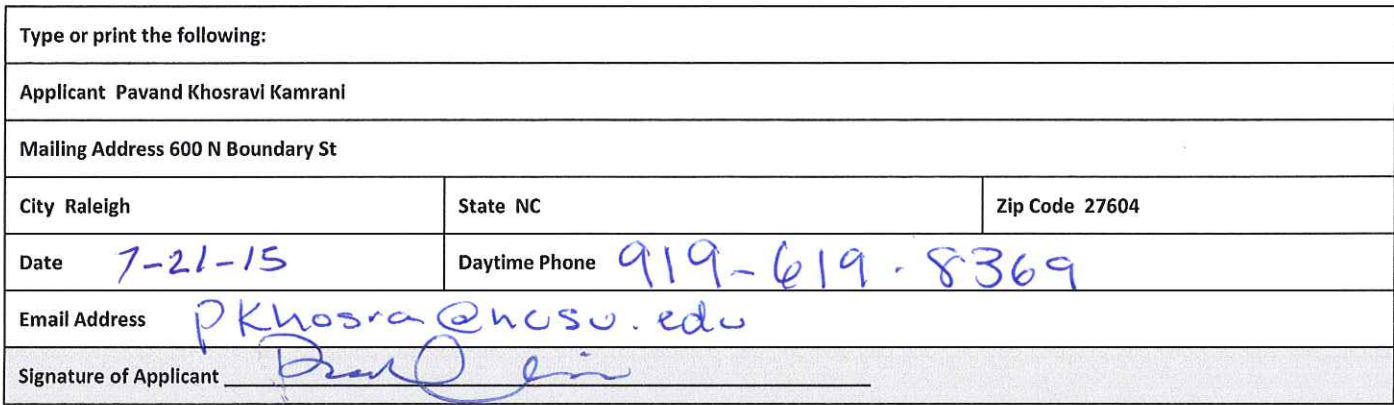 Type or print the following:
Applicant Pavand Khosravi Kamrani
Mailing Address 600 N Boundary St
City Raleigh State NC Zip Code 27604
Date 7-21-15 Daytime Phone 919-619-8369
Email Address pkhosra@ncsu.edu
Signature of Applicant